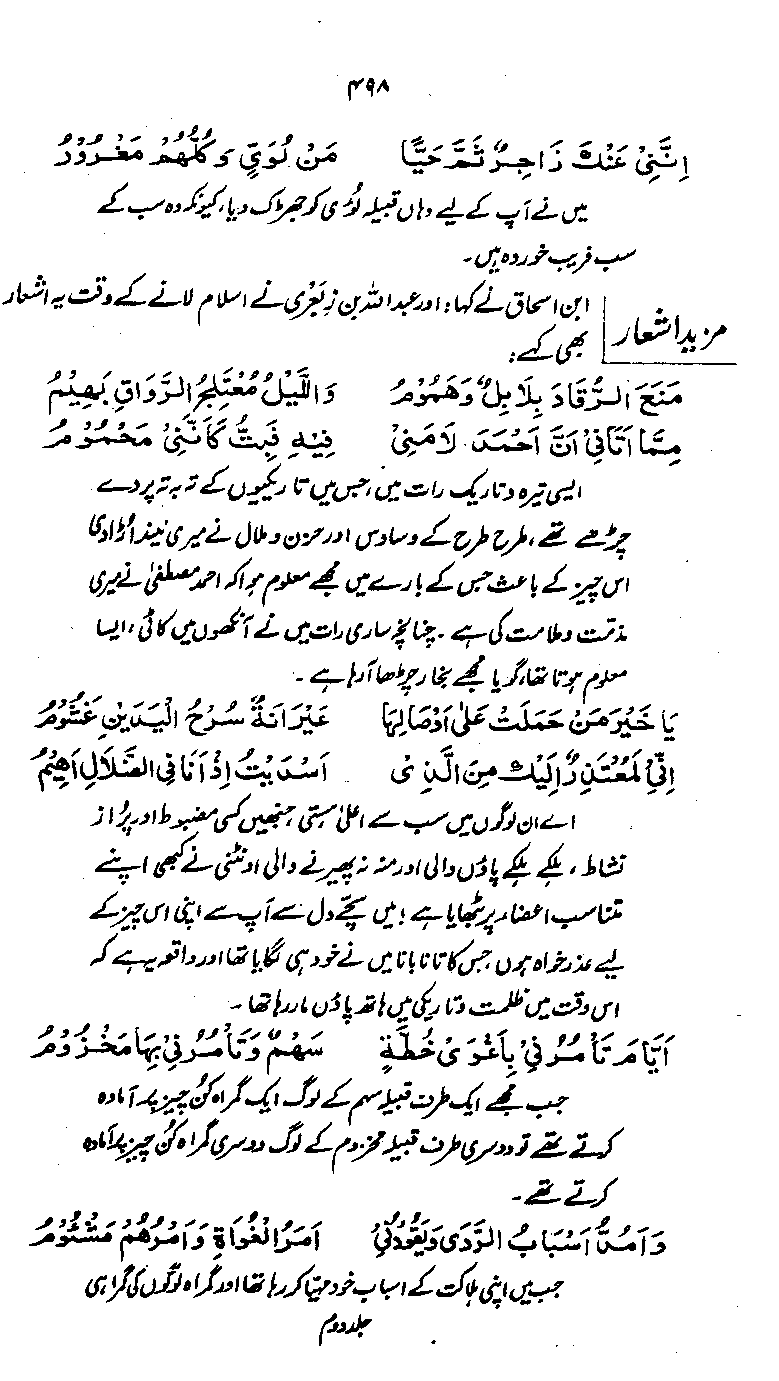 ۴۹۸
اِنَّنِیْ عَنْكَ زَاجِرٌ ثَمَّ حَیًّا مِنْ لُوَیٍّ وَكُلُّهُمْ مَغْرُوْرُ
میں نے آپ کے لیے وہاں قبیلہ لوئی کو جھڑک دیا، کیونکہ وہ سب کے
سب فریب خوردہ ہیں۔
مزید اشعار
ابن اسحاق نے کہا: اور عبد اللہ بن زبعریٰ نے اسلام لانے کے وقت یہ اشعار
بھی کہے:
مَنَعَ الرُّقَادَ بِلَابِلٌ وَهَمُوْمُ وَاللَّیْلُ مُعْتَلِجُ الرَّوَاقِ بَهِیْمُ
مِمَّا اَتَانِیْ اَنَّ اَحْمَدَ لَامَنِیْ فِیْهِ فَبِتُّ كَاَنَّنِیْ مَحْمُوْمُ
ایسی تیرہ و تاریک رات میں، جس میں تاریکیوں کے تہ بتہ پردے
چڑھے تھے، طرح طرح کے وساوس اور حزن و ملال نے میری نیند اڑا دی
اس چیز کے باعث جس کے بارے میں مجھے معلوم ہوا کہ احمد مصطفیٰ نے میری
مذمت و ملامت کی ہے۔ چنانچہ ساری رات میں نے آنکھوں میں کاٹی، ایسا
معلوم ہوتا تھا، گویا مجھے بخار چڑھا آرہا ہے۔
یَا خَیْرَ مَنْ حَمَلَتْ عَلٰی اَوْصَالِهَا عَیْرَانَةٌ سُرُحُ الْیَدَیْنِ غَشُوْمُ
اِنِّیْ لَمُعْتَذِرٌ اِلَیْكَ مِنَ الَّذِیْ اَسْدَیْتُ اِذْ اَنَا فِی الضَّلَالِ اَهِیْمُ
اے ان لوگوں میں سب سے اعلیٰ ہستی، جنھیں کسی مضبوط اور پُر از
نشاط، ہلکے ہلکے پاؤں والی اور منہ نہ پھیرنے والی اونٹنی نے کبھی اپنے
متناسب اعضاء پر بٹھایا ہے! میں سچے دل سے آپ سے اپنی اس چیز کے
لیے عذر خواہ ہوں، جس کا تانا بانا میں نے خود ہی لگایا تھا اور واقعہ یہ ہے کہ
اس وقت میں ظلمت و تاریکی میں ہاتھ پاؤں مار رہا تھا۔
اَیَّامَ تَأْمُرُنِیْ بِاَغْوٰی خُطَّةٍ سَهْمٌ وَتَأْمُرُنِیْ بِهَا مَخْزُوْمُ
جب مجھے ایک طرف قبیلہ سہم کے لوگ ایک گمراہ کن چیز پر آمادہ
کرتے تھے تو دوسری طرف قبیلہ مخزوم کے لوگ دوسری گمراہ کن چیز پر آمادہ
کرتے تھے۔
وَاَمُدُّ اَسْبَابَ الرَّدٰی وَیَقُوْدُنِیْ اَمْرُ الْغُوَاةِ وَاَمْرُهُمْ مَشْئُوْمُ
جب میں اپنی ہلاکت کے اسباب خود مہیّا کر رہا تھا اور گمراہ لوگوں کی گمراہی
جلد دوم